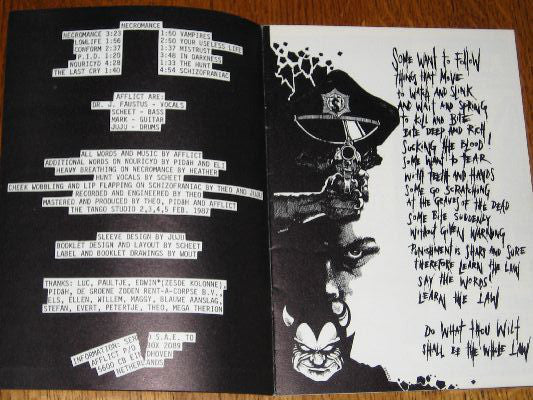 NECROMANCE
NECROMANCE 3:23 1:50 VAMPIRES
LOWLIFE 1:56 2:50 YOUR USELESS LIFE
CONFORM 2:37 1:37 MISTRUST
P.I.D. 1:20 3:48 IN DARKNESS
NOURICYD 4:28 1:33 THE HUNT
THE LAST CRY 1:40 4:54 SCHIZOFRANIAC
AFFLICT ARE:
DR. J. FAUSTUS - VOCALS
SCHEET - BASS
MARK - GUITAR
JUJU - DRUMS
ALL WORDS AND MUSIC BY AFFLICT
ADDITIONAL WORDS ON NOURICYD BY PIDAH AND ELI
HEAVY BREATHING ON NECROMANCE BY HEATHER
HUNT VOCALS BY SCHEET
CHEEK WOBBLING AND LIP FLAPPING ON SCHIZOFRANIAC BY THEO AND JUJU
RECORDED AND ENGINEERED BY THEO
MASTERED AND PRODUCED BY THEO, PIDAH AND AFFLICT
THE TANGO STUDIO 2,3,4,5 FEB. 1987
SLEEVE DESIGN BY JUJU
BOOKLET DESIGN AND LAYOUT BY SCHEET
LABEL AND BOOKLET DRAWINGS BY WOUT
THANKS: LUC, PAULTJE, EDWIN*(ZESDE KOLONNE),
PIDAH, DE GROENE ZODEN RENT-A-CORPSE B.V.,
ELS, ELLEN, WILLEM, MAGGY, BLAUWE AANSLAG,
STEFAN, EVERT, PETERTJE, THEO, MEGA THERION
INFORMATION: SEND S.A.E. TO
AFFLICT P/O BOX 2089
5600 CB EINDHOVEN
NETHERLANDS
SOME WANT TO FOLLOW
THING THAT MOVE
TO WAIT AND SLINK
AND WAIT AND SPRING
TO KILL AND BITE
BITE DEEP AND RICH
SUCKING THE BLOOD!
SOME WANT TO TEAR
WITH TEETH AND HANDS
SOME GO SCRATCHING
AT THE GRAVES OF THE DEAD
SOME BITE SUDDENLY
WITHOUT GIVEN WARNING
PUNISHMENT IS SHARP AND SURE
THEREFORE LEARN THE LAW
SAY THE WORDS
LEARN THE LAW
DO WHAT THOU WILT
SHALL BE THE WHOLE LAW